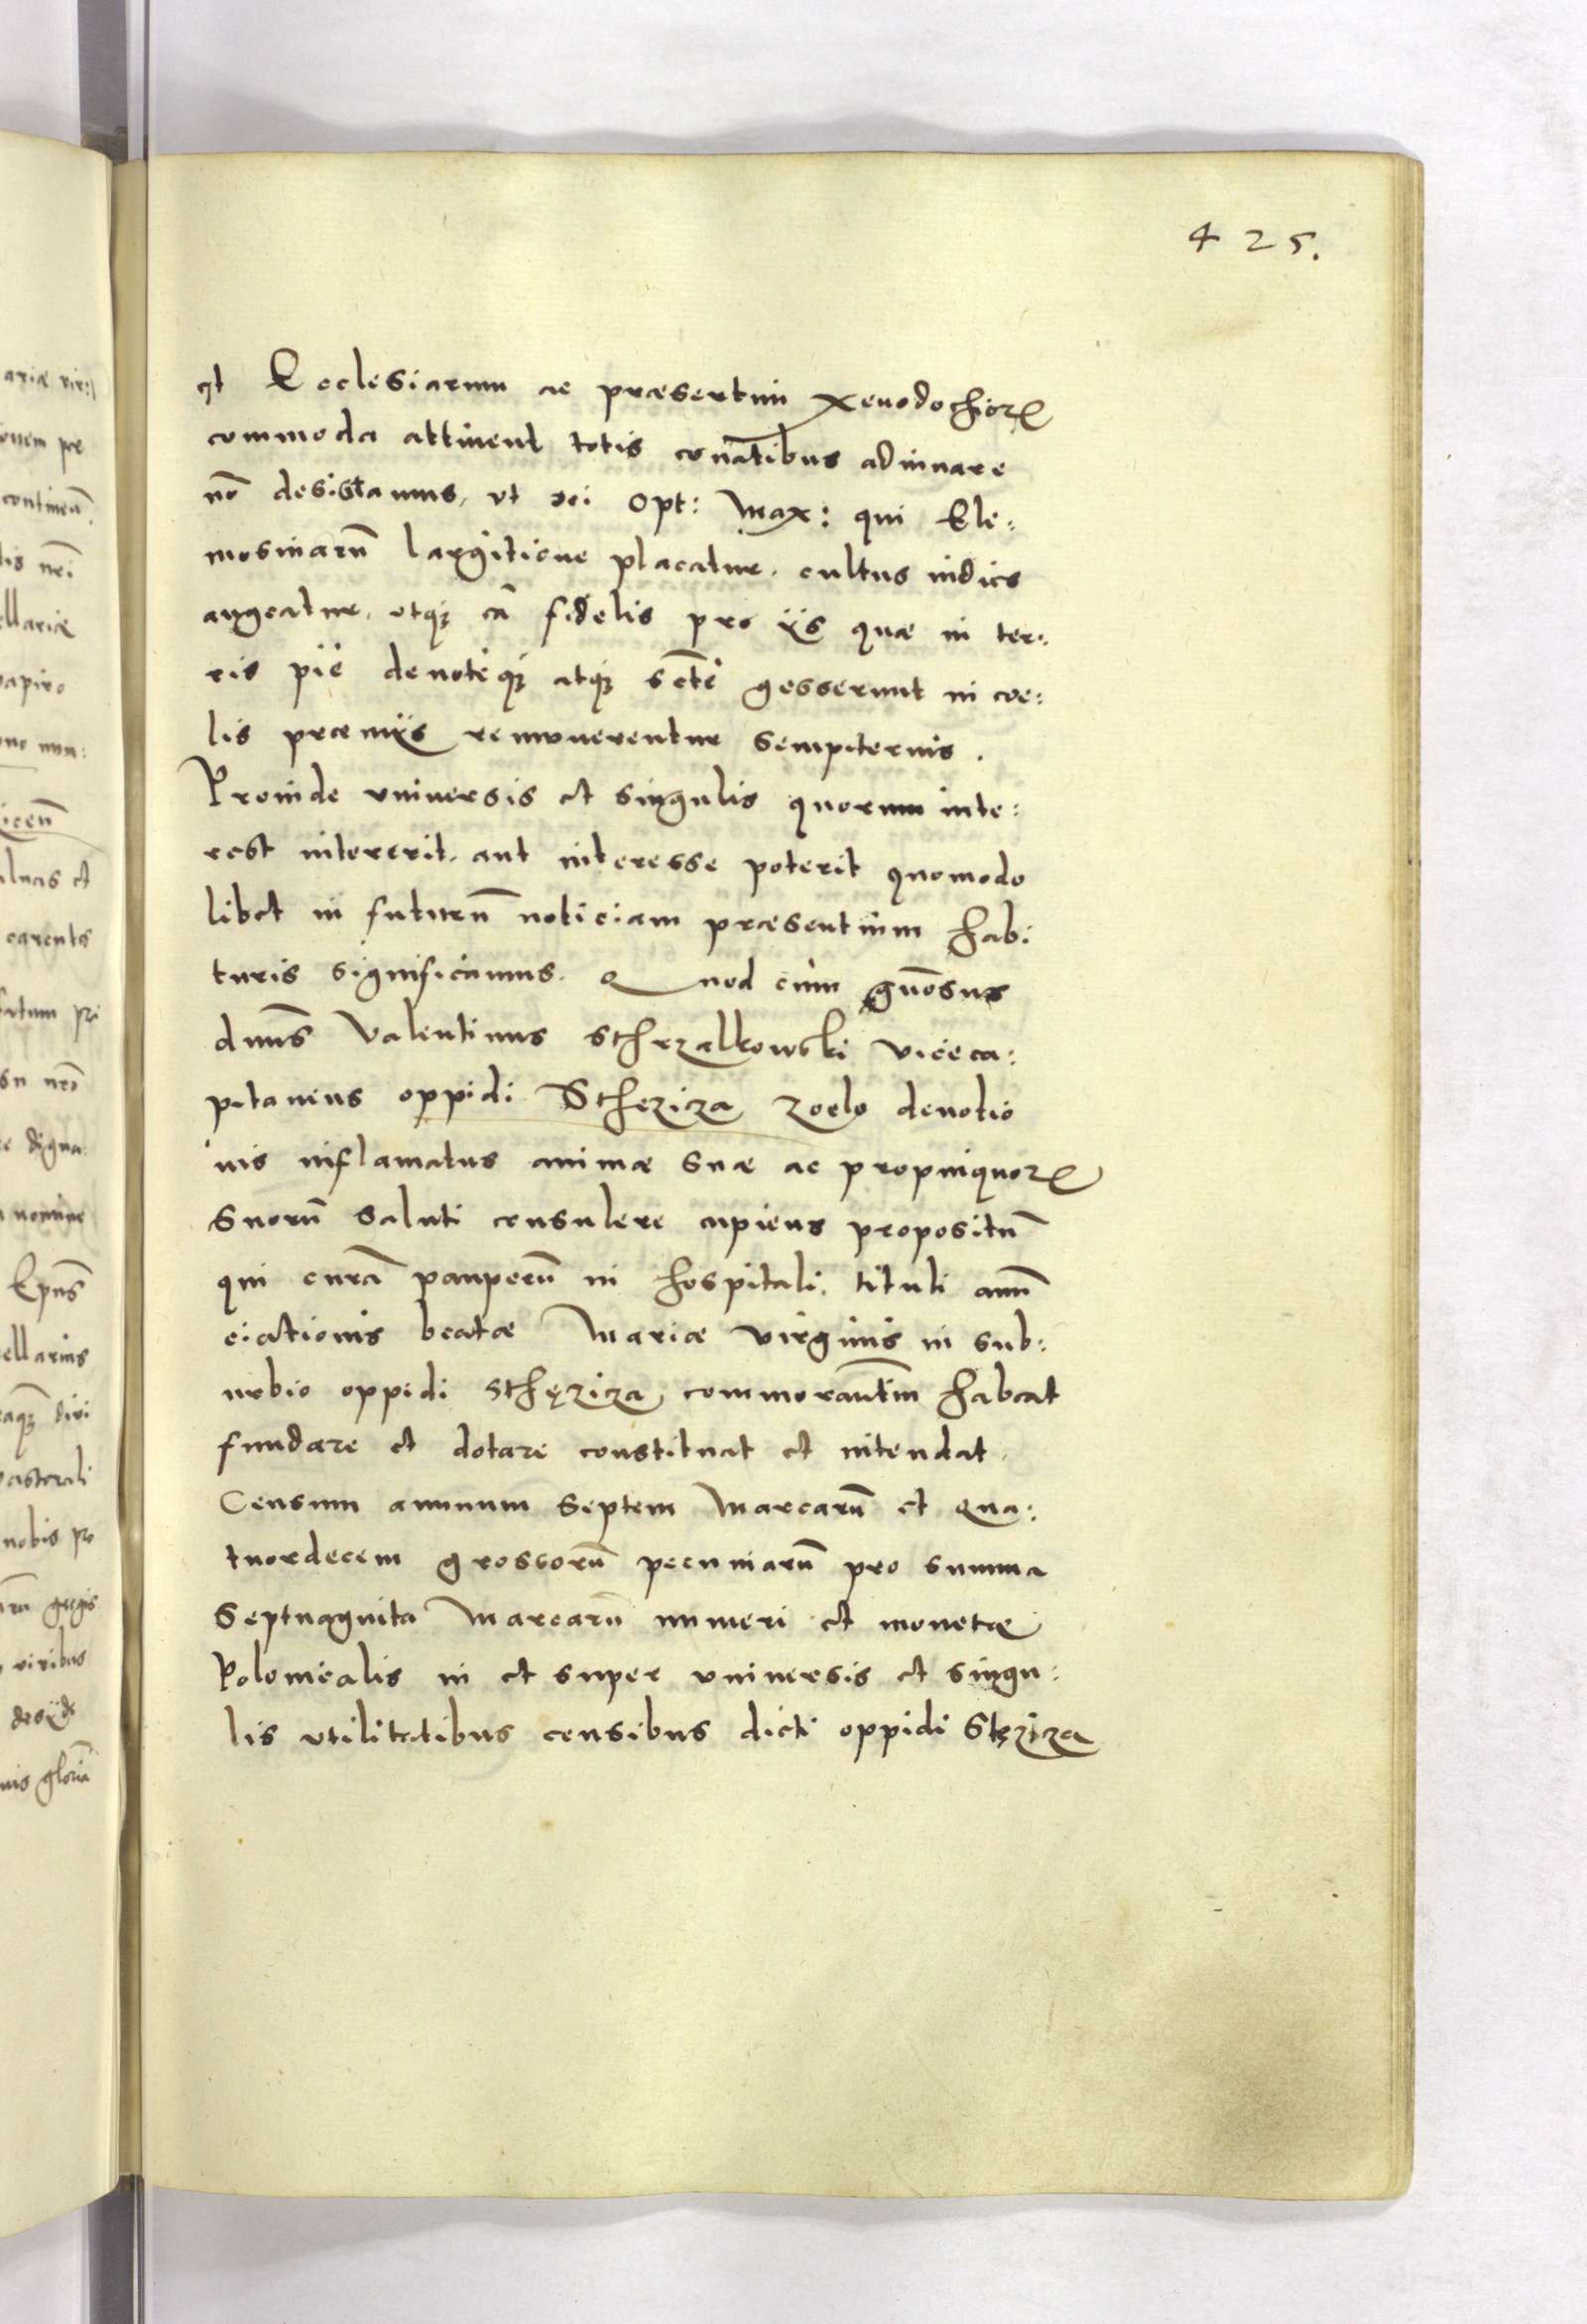 425.
et Ecclesiarum ac præsertim Xenodochiorꝝ
commoda attinent totis conātibus adiuuare
nō desistamus, vt Dei Opt: Max: qui Ele:
mosinarū largitione placatur, cultus indies
augeatur, vtqꝫ cū fidelis pro iis quæ in ter:
ris piè deuotèqꝫ atqꝫ sctè gesserunt in coe:
lis præmiis remunerentur sempiternis.
Proinde vniuersis et singulis quorum inte:
rest intererit, aut interesse poterit quomodo
libet in futurū noticiam præsentium habi
turis significamus. Quod cùm gnōsus
dnūs Valentinus Sthrzalkowski viceca:
pitanius oppidi Stheziza zoelo deuotio
nis inflamatus animæ suæ ac propinquorꝝ
suorū saluti consulere cupiens propositū
qui curā pauperū in hospitali, tituli annū
ciationis beatæ Mariæ virginis in sub:
urbio oppidi Sthęziza commorantīm habeat
fundare et dotare constituat et intendat,
Censum annuum septem Marcarū et Qua:
tuordecem grossorū pecuniarū pro summa
Septuaginta Marcarū numeri et monetæ
Polonicalis in et super vniuersis et singu:
lis vtilitatibus censibus dicti oppidi Stęziza
ariæ vir:
continen̄
ellariæ
papiro
carentes
digna:
nomine
Epūs
cellarius
pastorali
nobis pro
viribus
gloriā